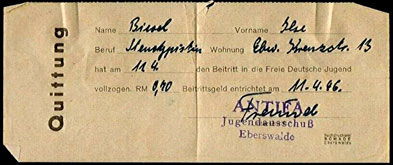 Quittung
Name Biesel Vorname Ilse
Beruf Stenotypistin Wohnung Ebw. 13
hat am 11.4. den Beitritt in die Freie Deutsche Jugend
vollzogen. RM 0,70 Beitrittsgeld entrichtet am 11.4.46.
ANTIFA
Jugendausschuß
Eberswalde